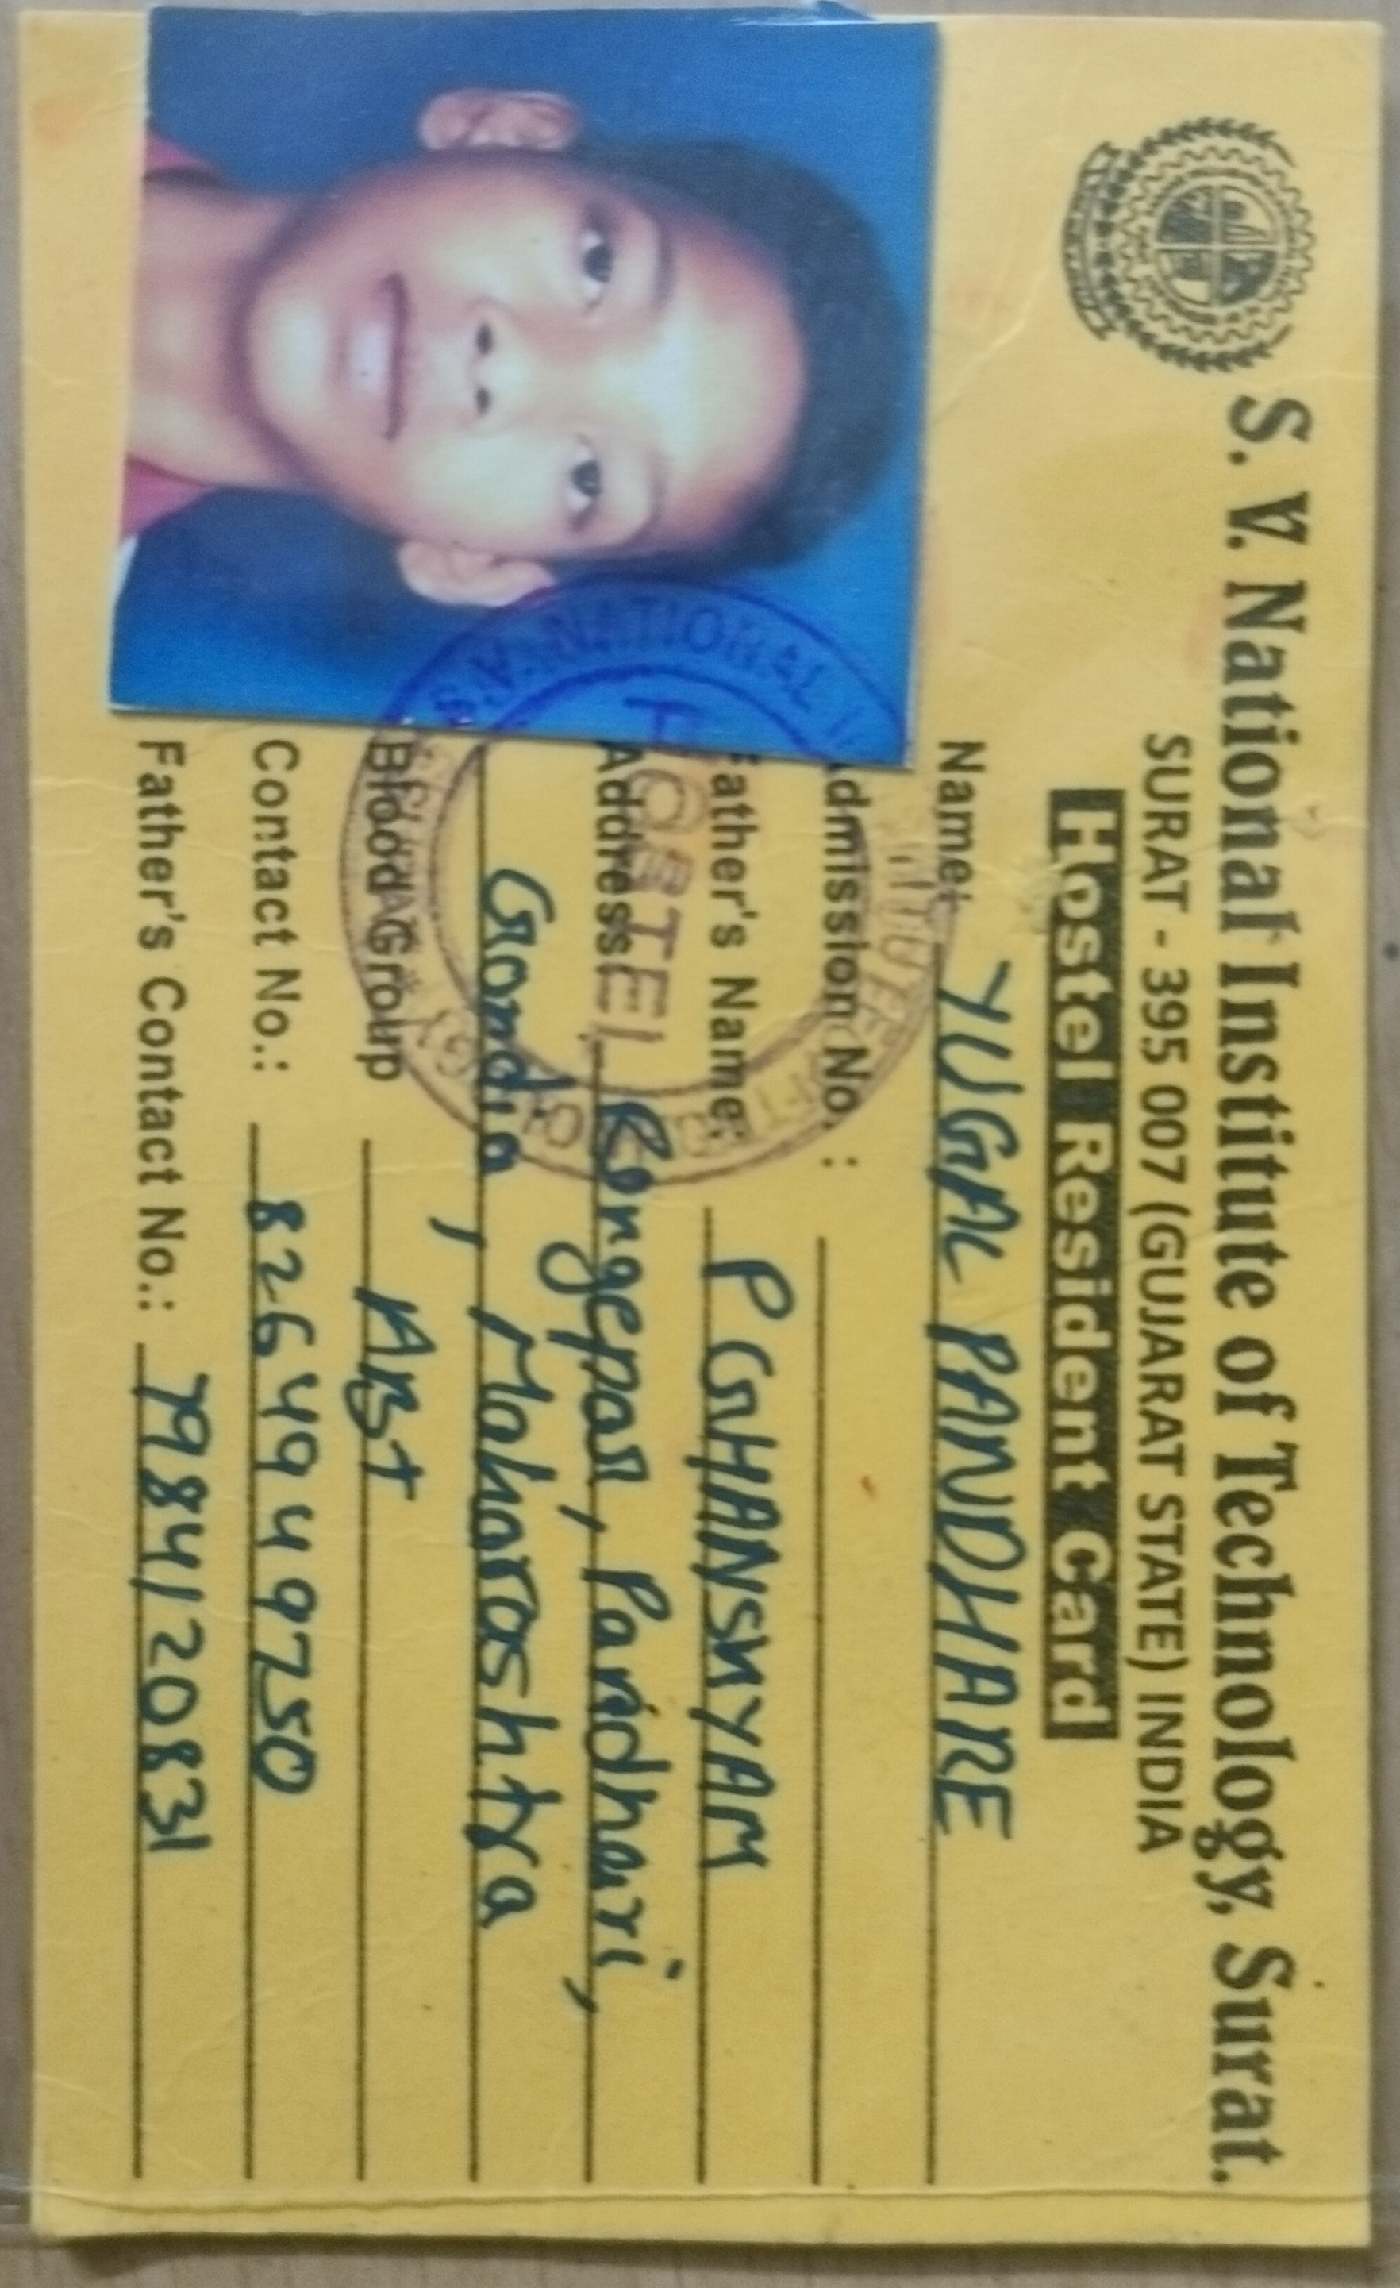 S. V. National Institute of Technology, Surat.
SURAT - 395 007 (GUJARAT STATE) INDIA
Hostel Resident Card
Name: YUGAL PANDHARE
Admission No. :
Father's Name: P GHANSHYAM
Address: Rengepar, Pandhari,
Gondia, Maharashtra
Blood Group AB+
Contact No.: 8264949750
Father's Contact No.: 7984120831
S.V. NATIONAL INSTITUTE OF TECHNOLOGY